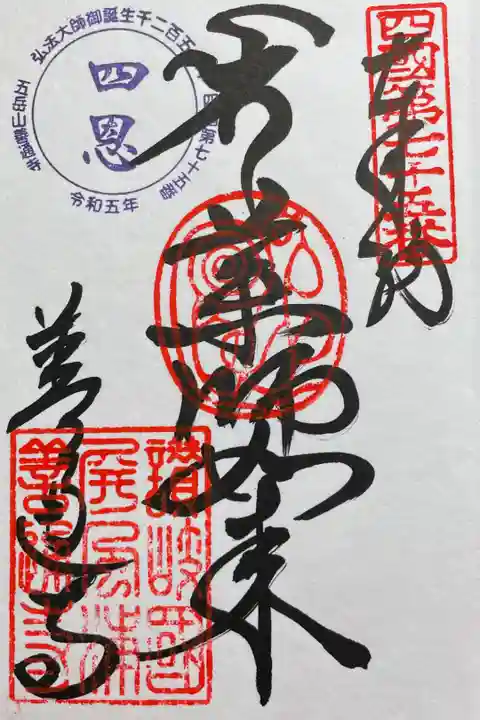 四國第七十五番
奉納
薬師如来
善通寺
弘法大師御誕生千二百五
四国第七十五番
四恩
五岳山善通寺
令和五年
讃岐國
屏風浦
善通寺